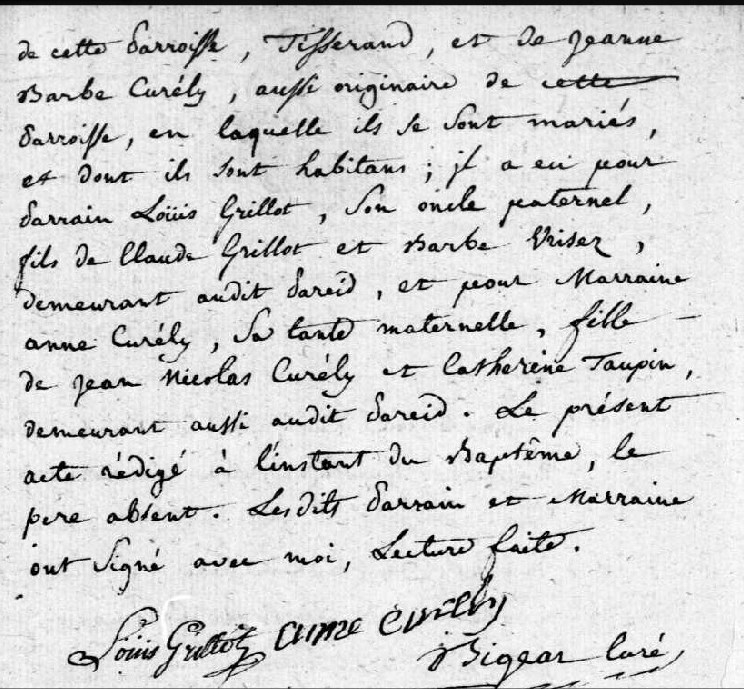 de cette Parroisse, Tisserand, et de jeanne
Barbe Curély, aussi originaire de cette
Parroisse, en laquelle ils se sont mariés,
et dont ils sont habitans; il a eu pour
Parrain Loüis Grillot, son oncle paternel,
fils de Claude Grillot et Barbe Vriser,
demeurant audit Pareid, et pour Marraine
anne Curély, Sa tante maternelle, fille
de jean Nicolas Curély et Catherine Taupin,
demeurant aussi audit Pareid. Le présent
acte rédigé à l'instant du Baptême, le
pere absent. Lesdits Parrain et Marraine
ont Signé avec moi, Lecture faite.
Loüis Grillot anne curely
Bigear Curé